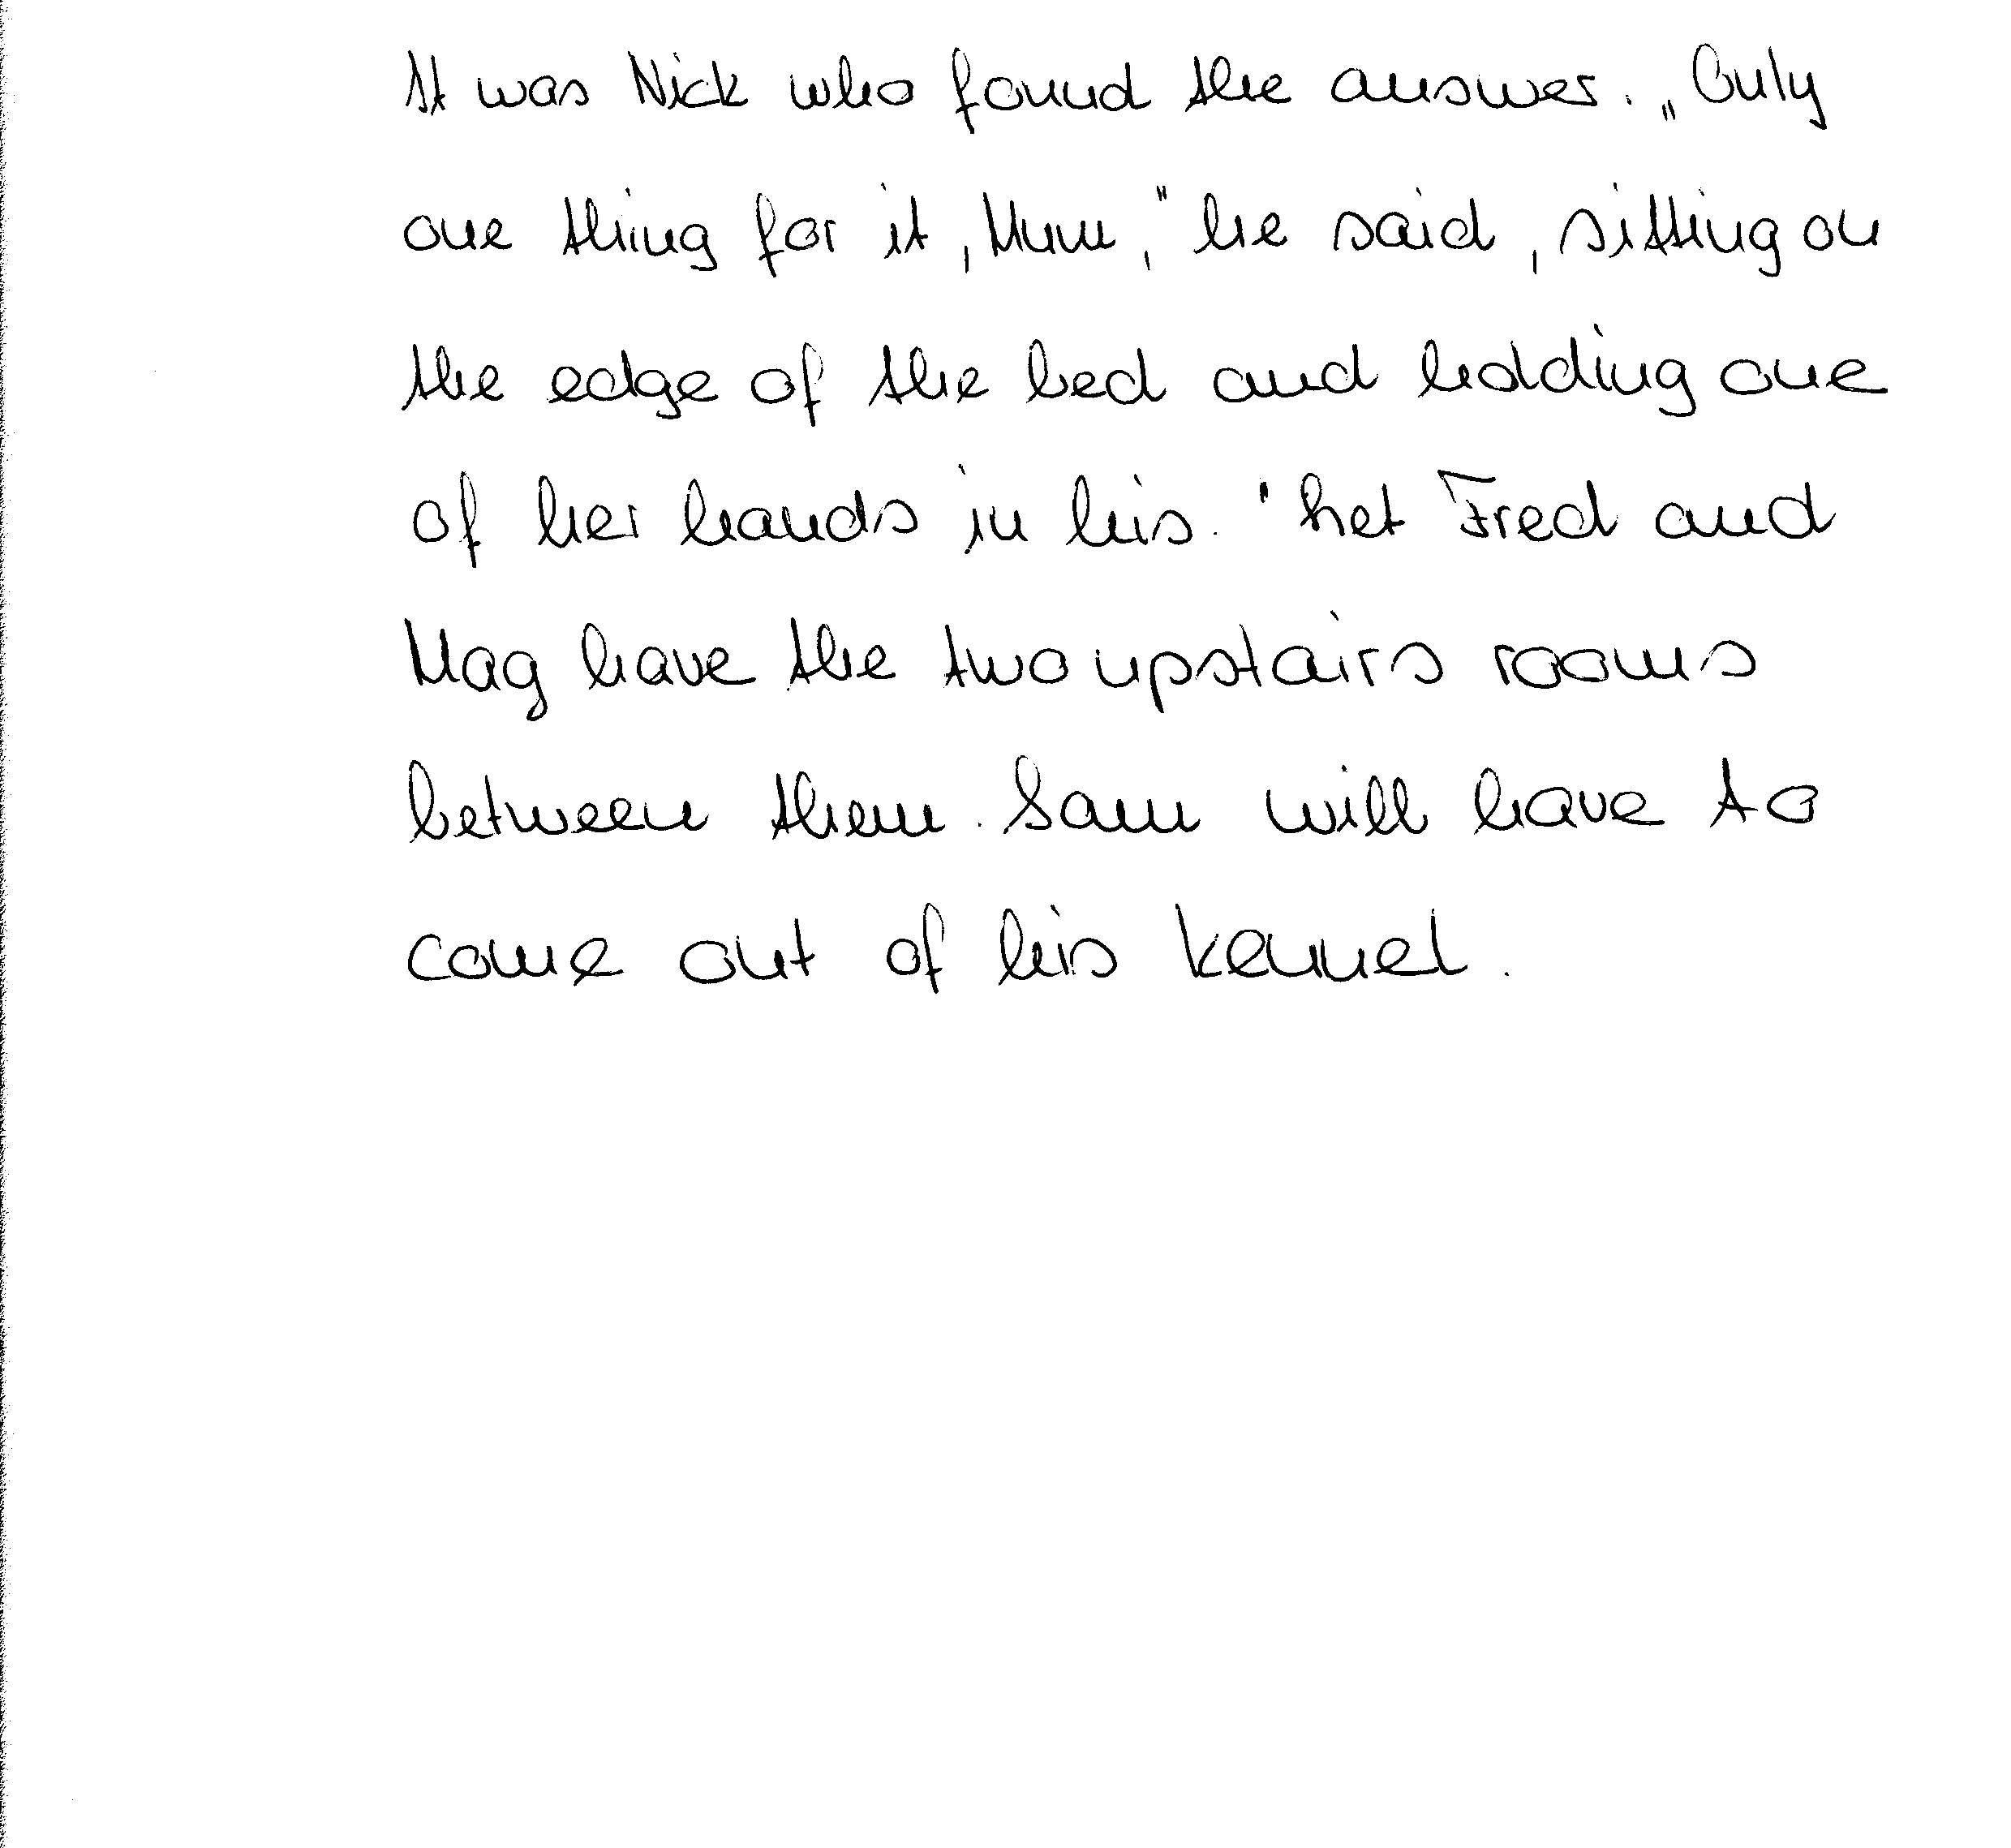 It was Nick who found the answer. „Only
one thing for it, Mum," he said, sitting on
the edge of the bed and holding one
of her hands in his. 'Let Fred and
Mag have the two upstairs rooms
between them. Sam will have to
come out of his kennel.